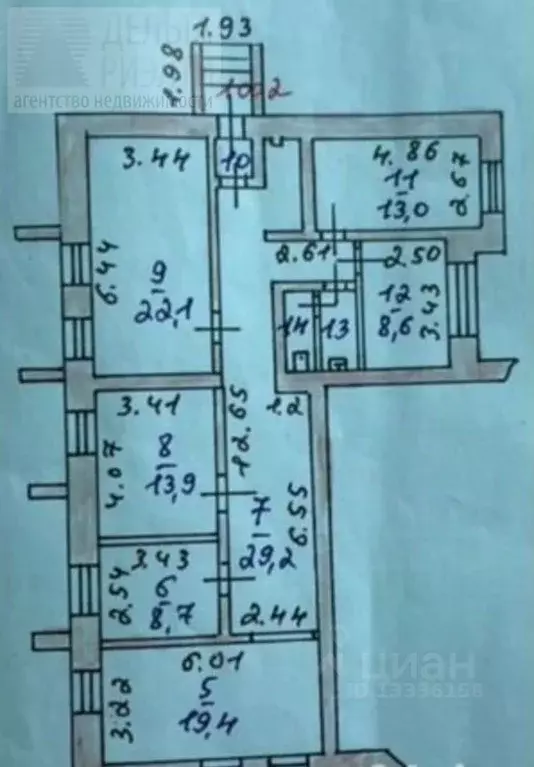 ДЕЛЬТА
РИЭЛТ
агентство недвижимости
1.93
1.98
10
3.44
6.44
9
22,1
4.86
11
13,0
2.67
2.61
2.50
12
8,6
3.43
14
13
3.41
4.07
8
13,9
12.65
1.2
7
29,2
6.55
3.43
2.54
6
8,7
2.44
6.01
3.22
5
19,4
циан